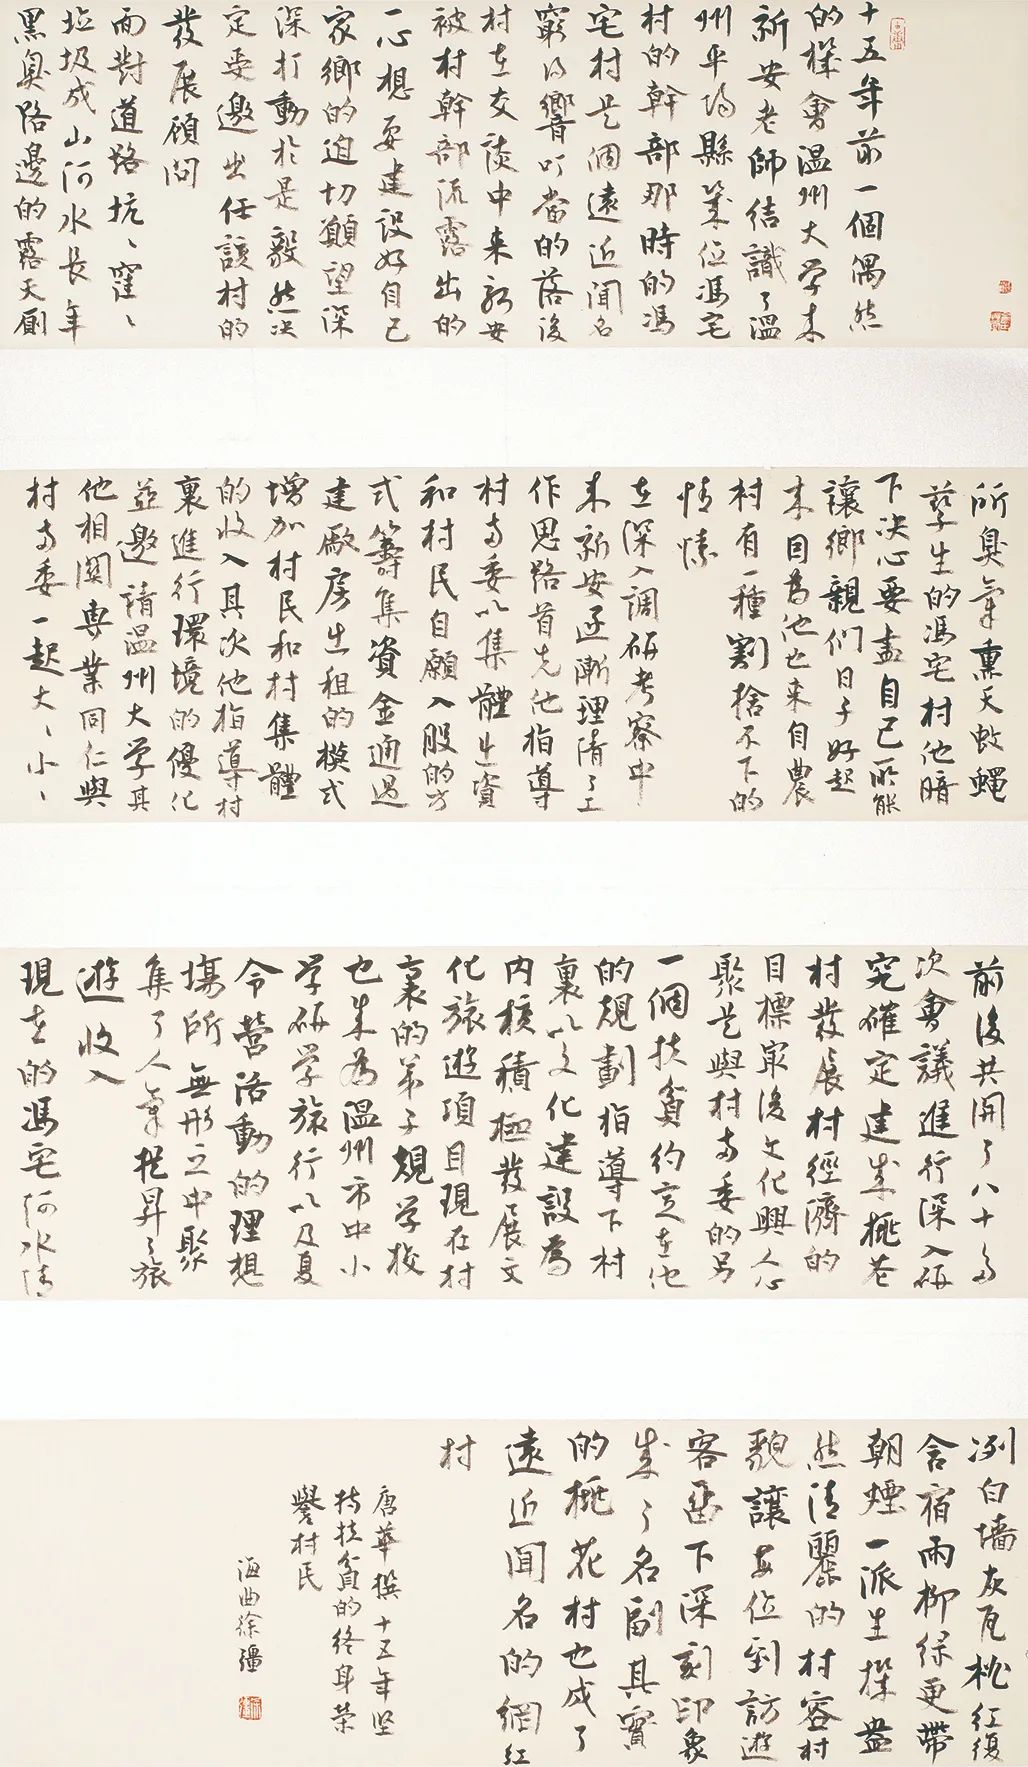 十五年前一個偶然
的機會溫州大学来
新安老師结識了溫
州平陽縣幾位馮宅
村的幹部那時的馮
宅村是個遠近闻名
窮得響叮當的落後
村在交談中来新安
被村幹部流露出的
一心想要建設好自己
家鄉的迫切願望深
深打動於是毅然决
定要邀出任該村的
發展顾问
面對道路坑、窪、
垃圾成山河水長年
黑臭路邊的露天厠
所臭氣熏天蚊蝇
孳生的馮宅村他暗
下决心要盡自己所能
讓鄉親們日子好起
来因為他也来自農
村有一種割捨不下的
情愫
在深入調研考察中
来新安逐漸理清了工
作思路首先他指導
村両委以集體出資
和村民自願入股的方
式籌集資金通過
建廠房出租的模式
增加村民和村集體
的收入其次他指導村
裏進行環境的優化
並邀請温州大学其
他相関専業同仁與
村両委一起大、小、
前後共開了八十多
次會議進行深入研
究確定建成桃花
村發展村經濟的
目標最後文化興人心
聚是與村両委的另
一個扶貧約定在他
的規劃指導下村
裏以文化建設為
内核積極發展文
化旅遊項目現在村
裏的弟子規学校
也成為温州市中小
学研学旅行以及夏
令營活動的理想
場所無形之中聚
集了人氣提昇了旅
遊收入
現在的馮宅河水清
冽白墙灰瓦桃红復
含宿雨柳绿更帶
朝煙一派生機盎
然清麗的村容村
貌讓每位到訪遊
客留下深刻印象
成了名副其實
的桃花村也成了
遠近聞名的網红
村
唐華撰十五年堅
持扶貧的终身荣
譽村民
海曲徐疆